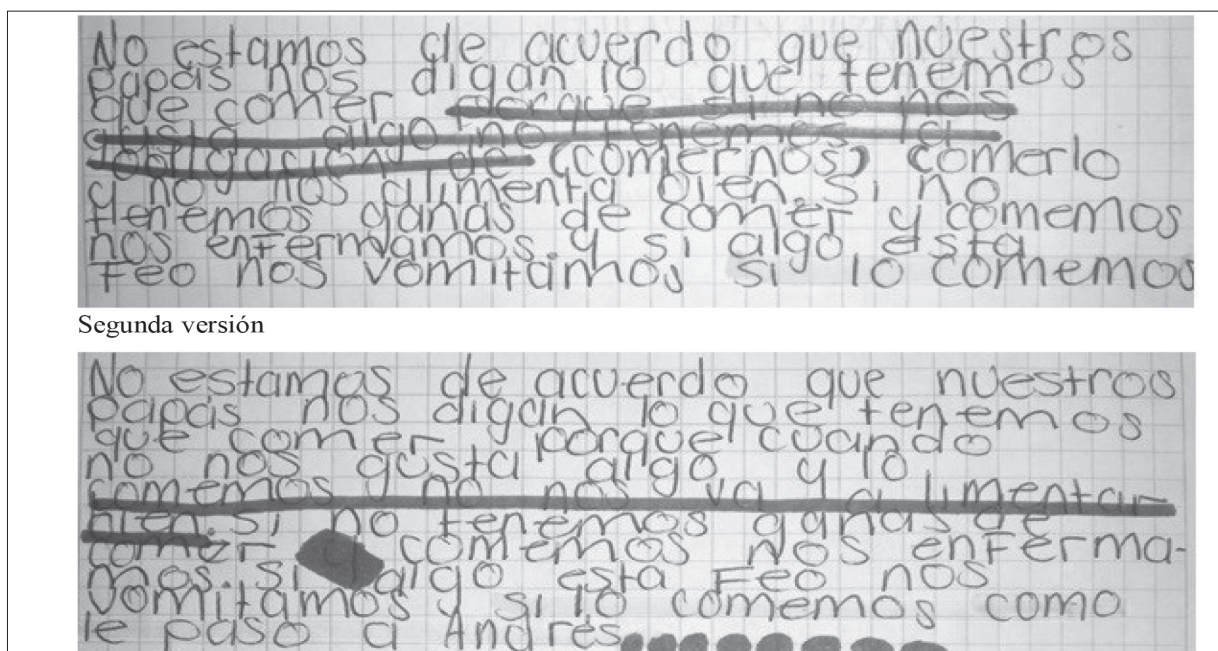 No estamos de acuerdo que nuestros
papás nos digan lo que tenemos
que comer porque si no nos
gusta algo no tenemos la
obligación de (comernos) comerlo
y no nos alimenta bien. si no
tenemos ganas de comer y comemos
nos enfermamos. y si algo esta
Feo nos vomitamos si lo comemos
Segunda versión
No estamos de acuerdo que nuestros
papás nos digan lo que tenemos
que comer porque cuando
no nos gusta algo y lo
comemos no nos va a alimentar
bien. si no tenemos ganas de
comer comemos nos enferma-
mos. si algo esta Feo nos
vomitamos y si lo comemos como
le paso a Andrés